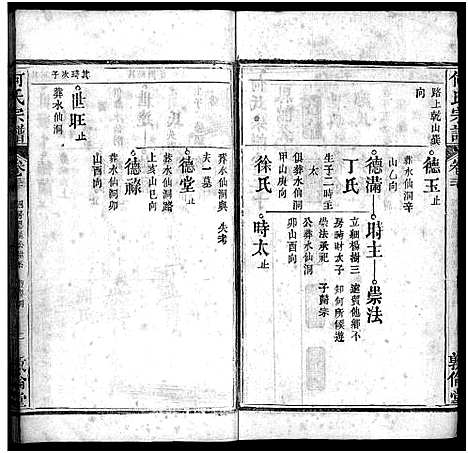 何氏宗譜
卷三
敦倫堂
路上乾山巽
向
德玉止
葬水仙洞辛
山乙向
德滿——時主——崇法
立繼楊樹三
房時財次子
崇法承祀
公葬水仙洞
卯山酉向
遠貿他鄉不
知何所候遊
子歸宗
丁氏
生子二時主
時太
俱葬水仙洞
甲山庚向
徐氏
時太止
葬水仙洞與
夫一墓
失考
德堂止
葬水仙洞路
上亥山巳向
德祿止
葬水仙洞卯
山酉向
其琦次子
世旺止
葬水仙洞
何氏宗譜
卷
敦倫堂